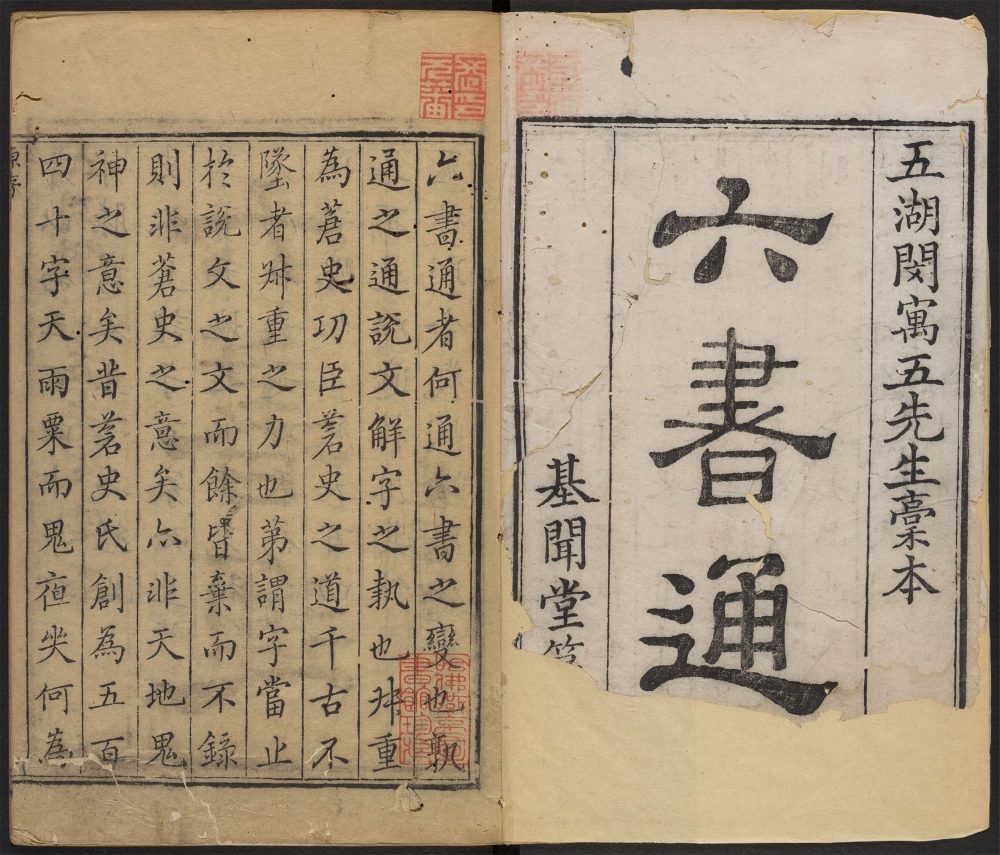 五湖閔寓五先生稾本
六書通
基聞堂
六書通者何通六書之變也執
通之通說文解字之執也叔重
為蒼史功臣蒼史之道千古不
墜者叔重之力也第謂字當止
於說文之文而餘皆棄而不錄
則非蒼史之意矣亦非天地鬼
神之意矣昔蒼史氏創為五百
四十字天雨粟而鬼夜哭何為
原序